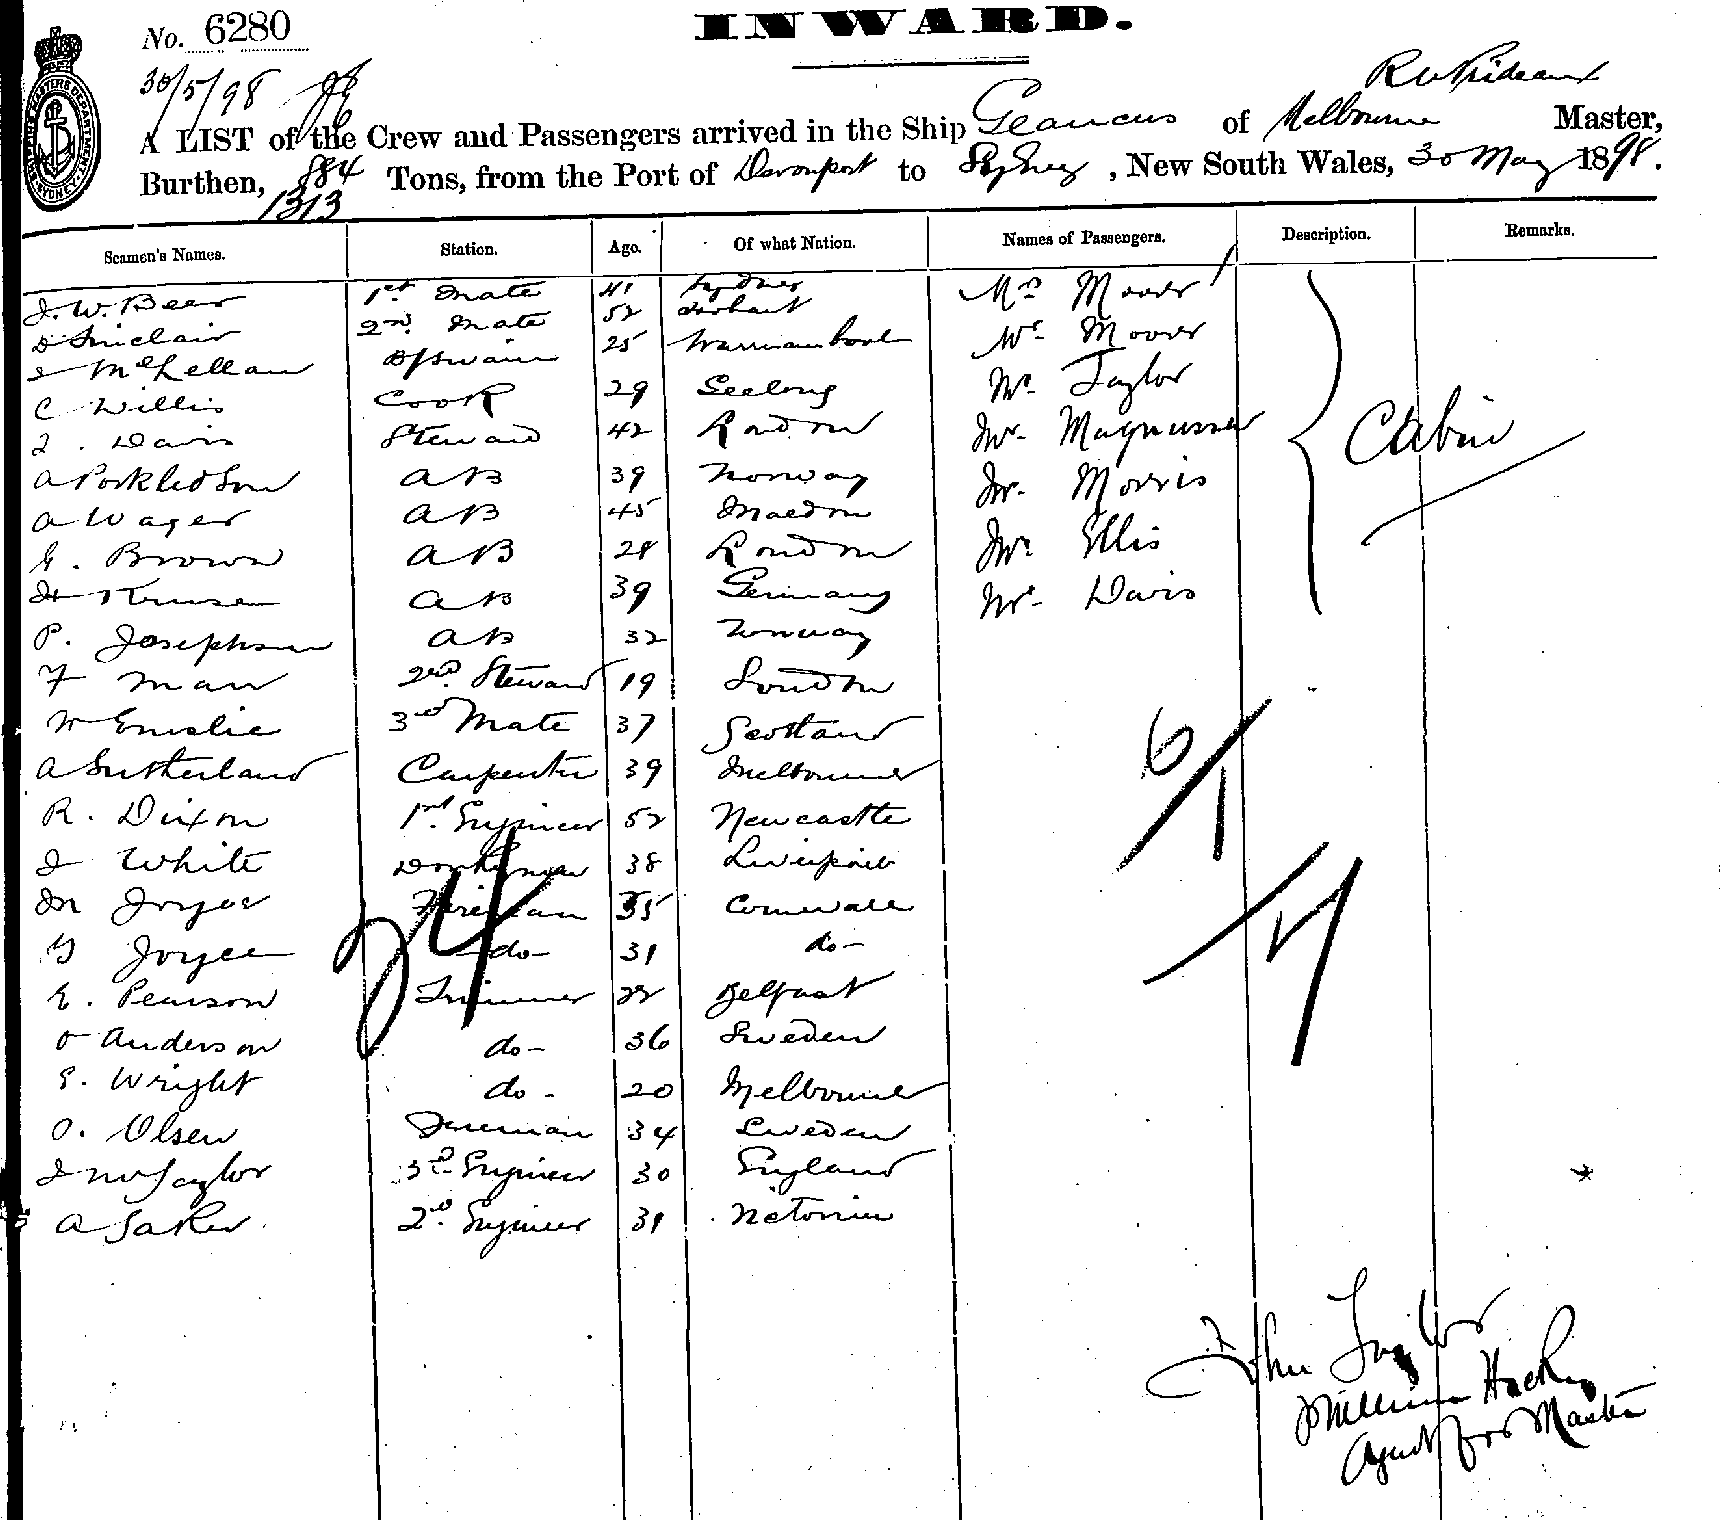 No. 6280
INWARD.
30/5/98
R W Prideaux
A LIST of the Crew and Passengers arrived in the Ship Glaucus of Melbourne Master,
Burthen, 884 Tons, from the Port of Devonport to Sydney, New South Wales, 30 May 1898.
1313
Seamen's Names. Station. Age. Of what Nation. Names of Passengers. Description. Remarks.
J. W. Beer 1st Mate 41 Sydney Mrs Moore
D Sinclair 2nd Mate 52 Hobart Mr Moore
McLellan B/swain 25 Warrnambool Mr Taylor
C Willis Cook 29 Geelong Mr Magnusson Cabin
J. Davis Steward 42 London Mr Morris
A AB 39 Norway Mr Ellis
A Wager AB 45 Maldon Mr Davis
G. Brown AB 28 London
H Kruse AB 39 Germany
P. Josephson AB 32 Norway
F Man 2nd Steward 19 London
W Emslie 3rd Mate 37 Scotland
A Sutherland Carpenter 39 Melbourne
R. Dixon 1st Engineer 52 Newcastle
J White Donkeyman 38 Liverpool
M Joyce Fireman 35 Cornwall
G Joyce do- 31 do-
E. Pearson Trimmer 22 Belfast
O Anderson do- 36 Sweden
E. Wright do- 20 Melbourne
O. Olsen Fireman 34 Sweden
J W Taylor 3rd Engineer 30 England
A 2nd Engineer 31 Victoria
24
6/1
/7
John Taylor
William
Agent for Master